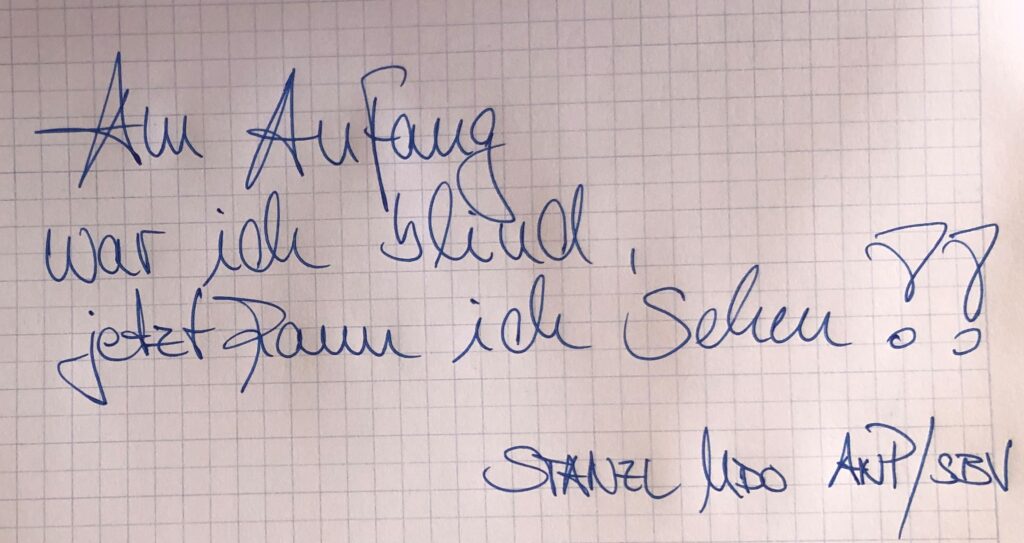 Am Anfang
war ich blind,
jetzt kann ich Sehen!!
STANZL UDO AKP/SBV